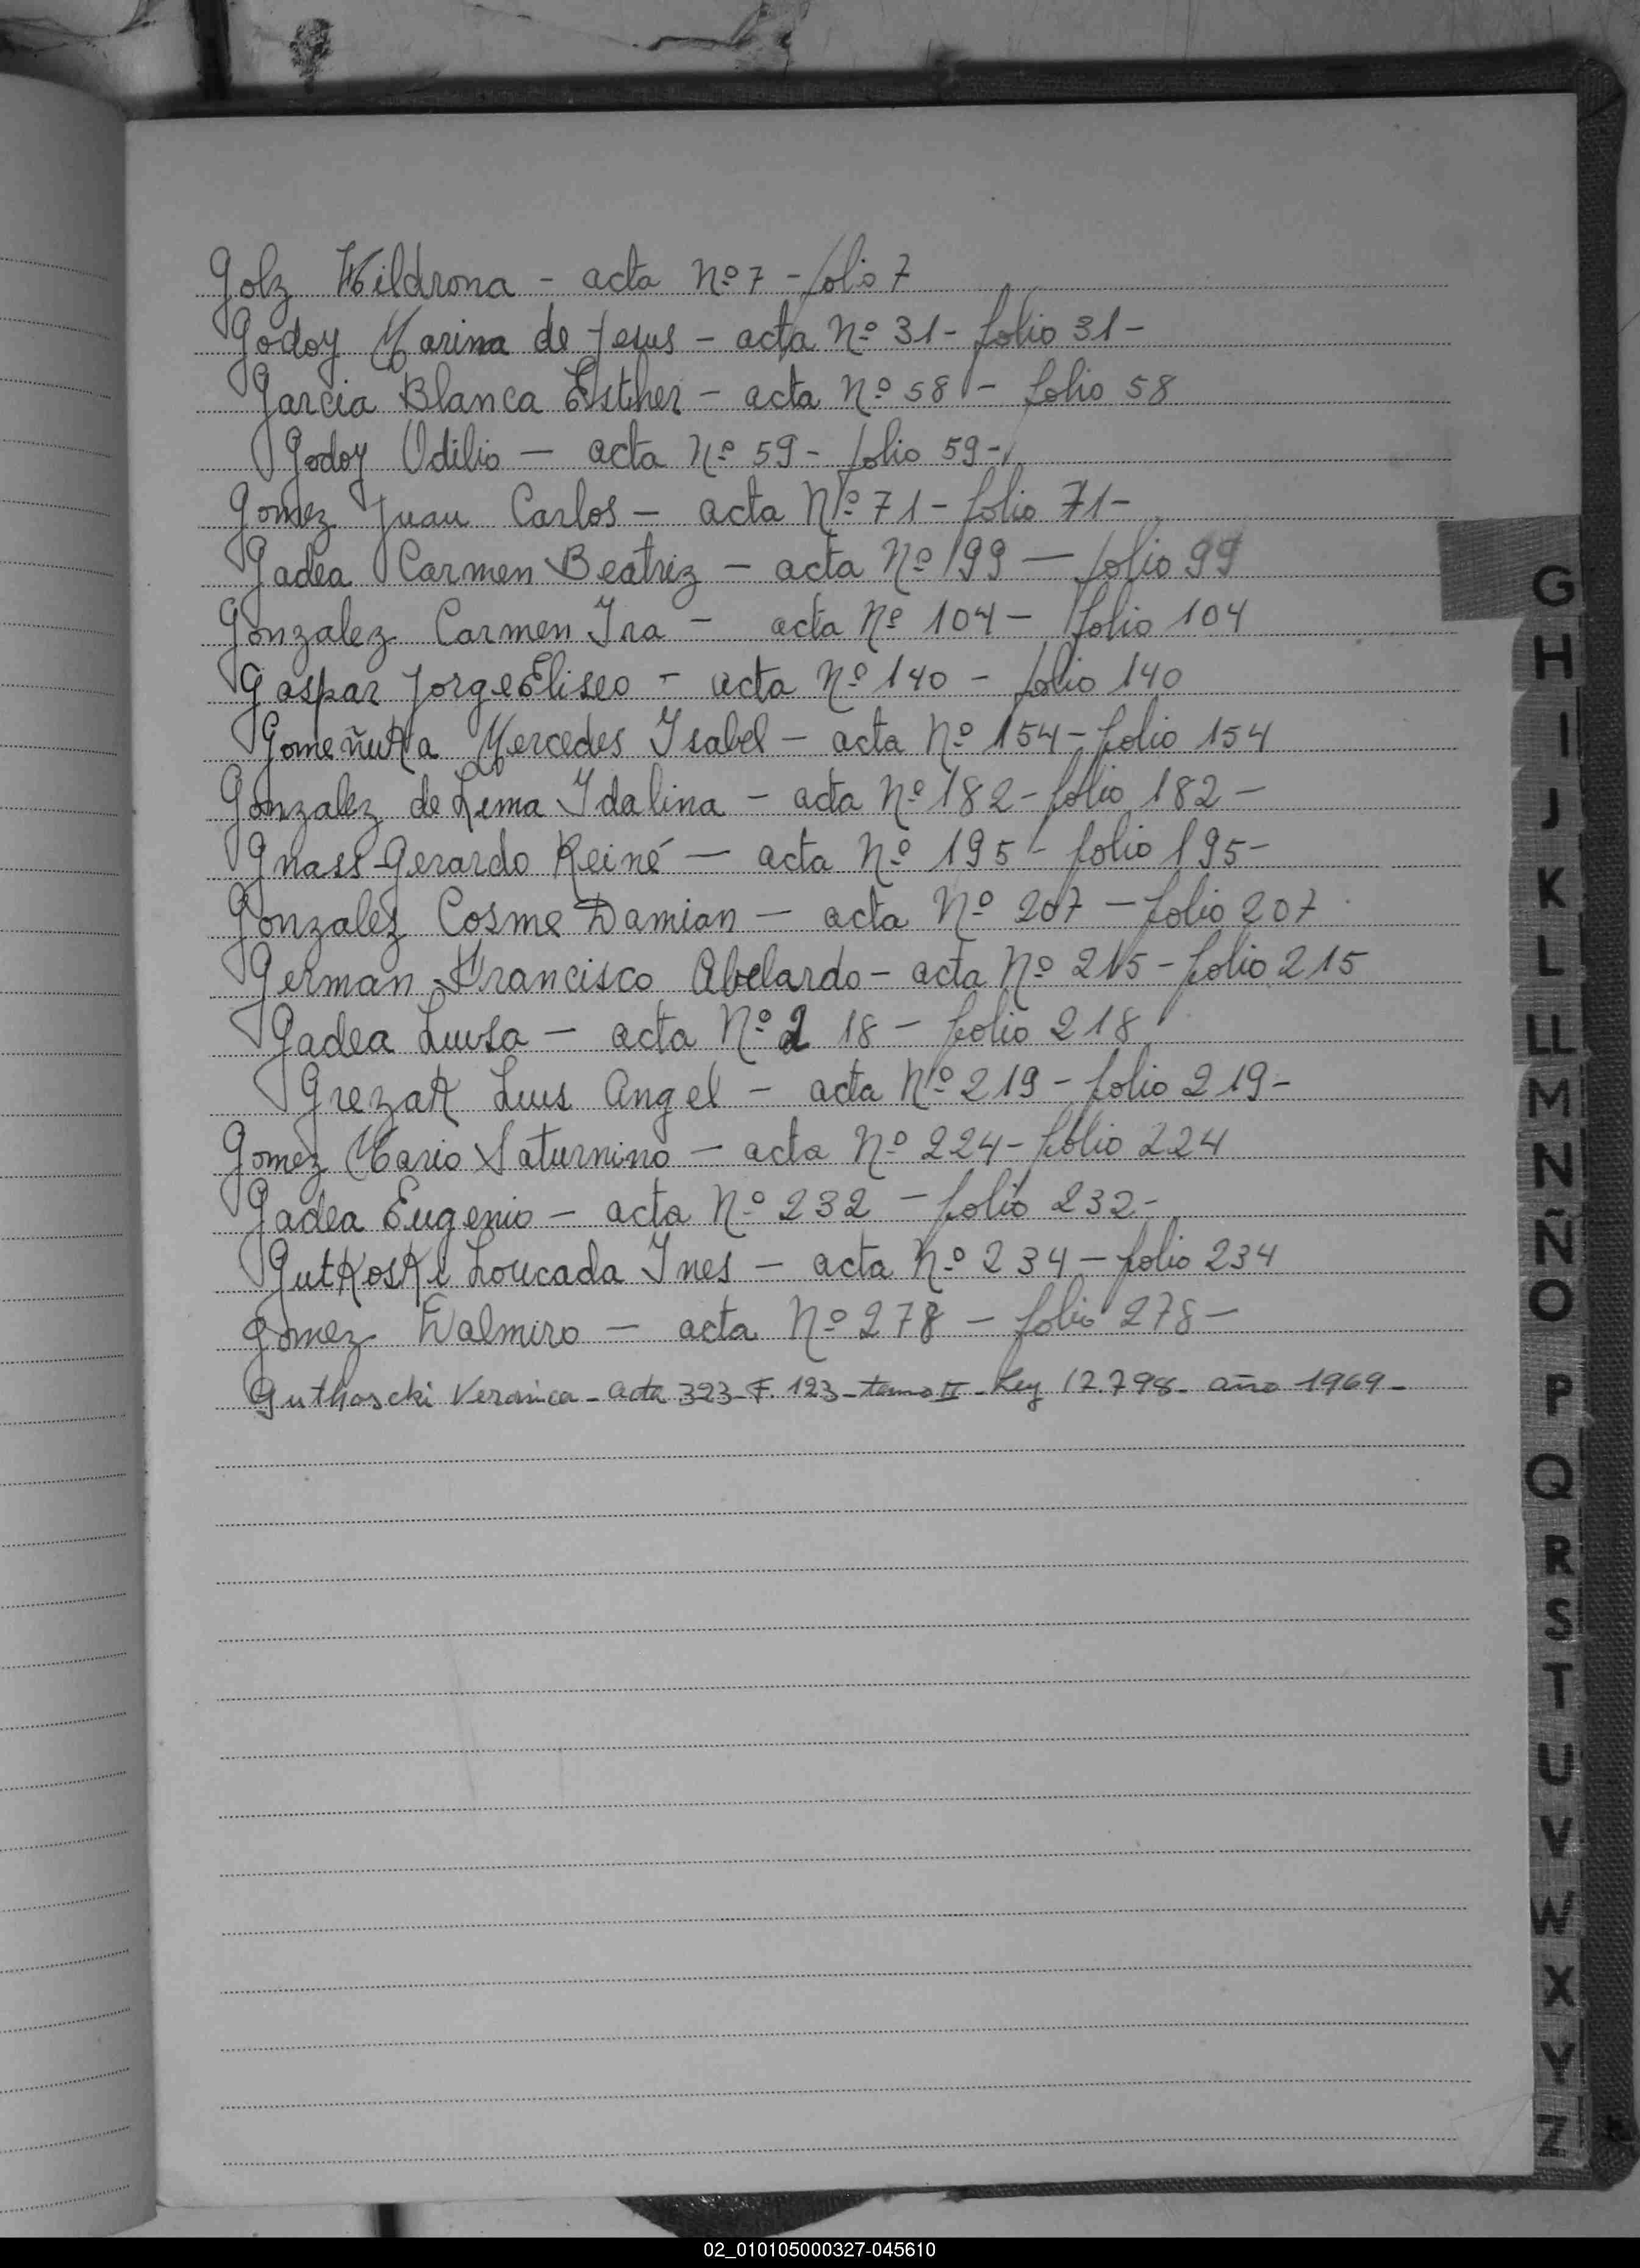 Golz Wildrona - acta Nº 7 - folio 7
Godoy Marina de Jesus - acta Nº 31 - folio 31 -
Garcia Blanca Esther - acta Nº 58 - folio 58
Godoy Odilio - acta Nº 59 - folio 59 -
Gomez Juan Carlos - acta Nº 71 - folio 71 -
Gadea Carmen Beatriz - acta Nº 99 - folio 99
Gonzalez Carmen Ira - acta Nº 104 - folio 104
Gaspar Jorge Eliseo - acta Nº 140 - folio 140
Gomeñuka Mercedes Isabel - acta Nº 154 - folio 154
Gonzalez de Lima Idalina - acta Nº 182 - folio 182 -
Gnass Gerardo Reiné - acta Nº 195 - folio 195 -
Gonzalez Cosme Damian - acta Nº 207 - folio 207
German Francisco Abelardo - acta Nº 215 - folio 215
Gadea Luisa - acta Nº 218 - folio 218
Grezak Luis Angel - acta Nº 219 - folio 219 -
Gomez Mario Saturnino - acta Nº 224 - folio 224
Gadea Eugenio - acta Nº 232 - folio 232 -
Gutkoski Loucada Ines - acta Nº 234 - folio 234
Gomez Dalmiro - acta Nº 278 - folio 278 -
Guthoscki Veronica - acta 323 - F. 123 - tomo II - Ley 17.798 - año 1969 -
G
H
I
J
K
L
LL
M
N
Ñ
O
P
Q
R
S
T
U
V
W
X
Y
Z
02_010105000327-045610